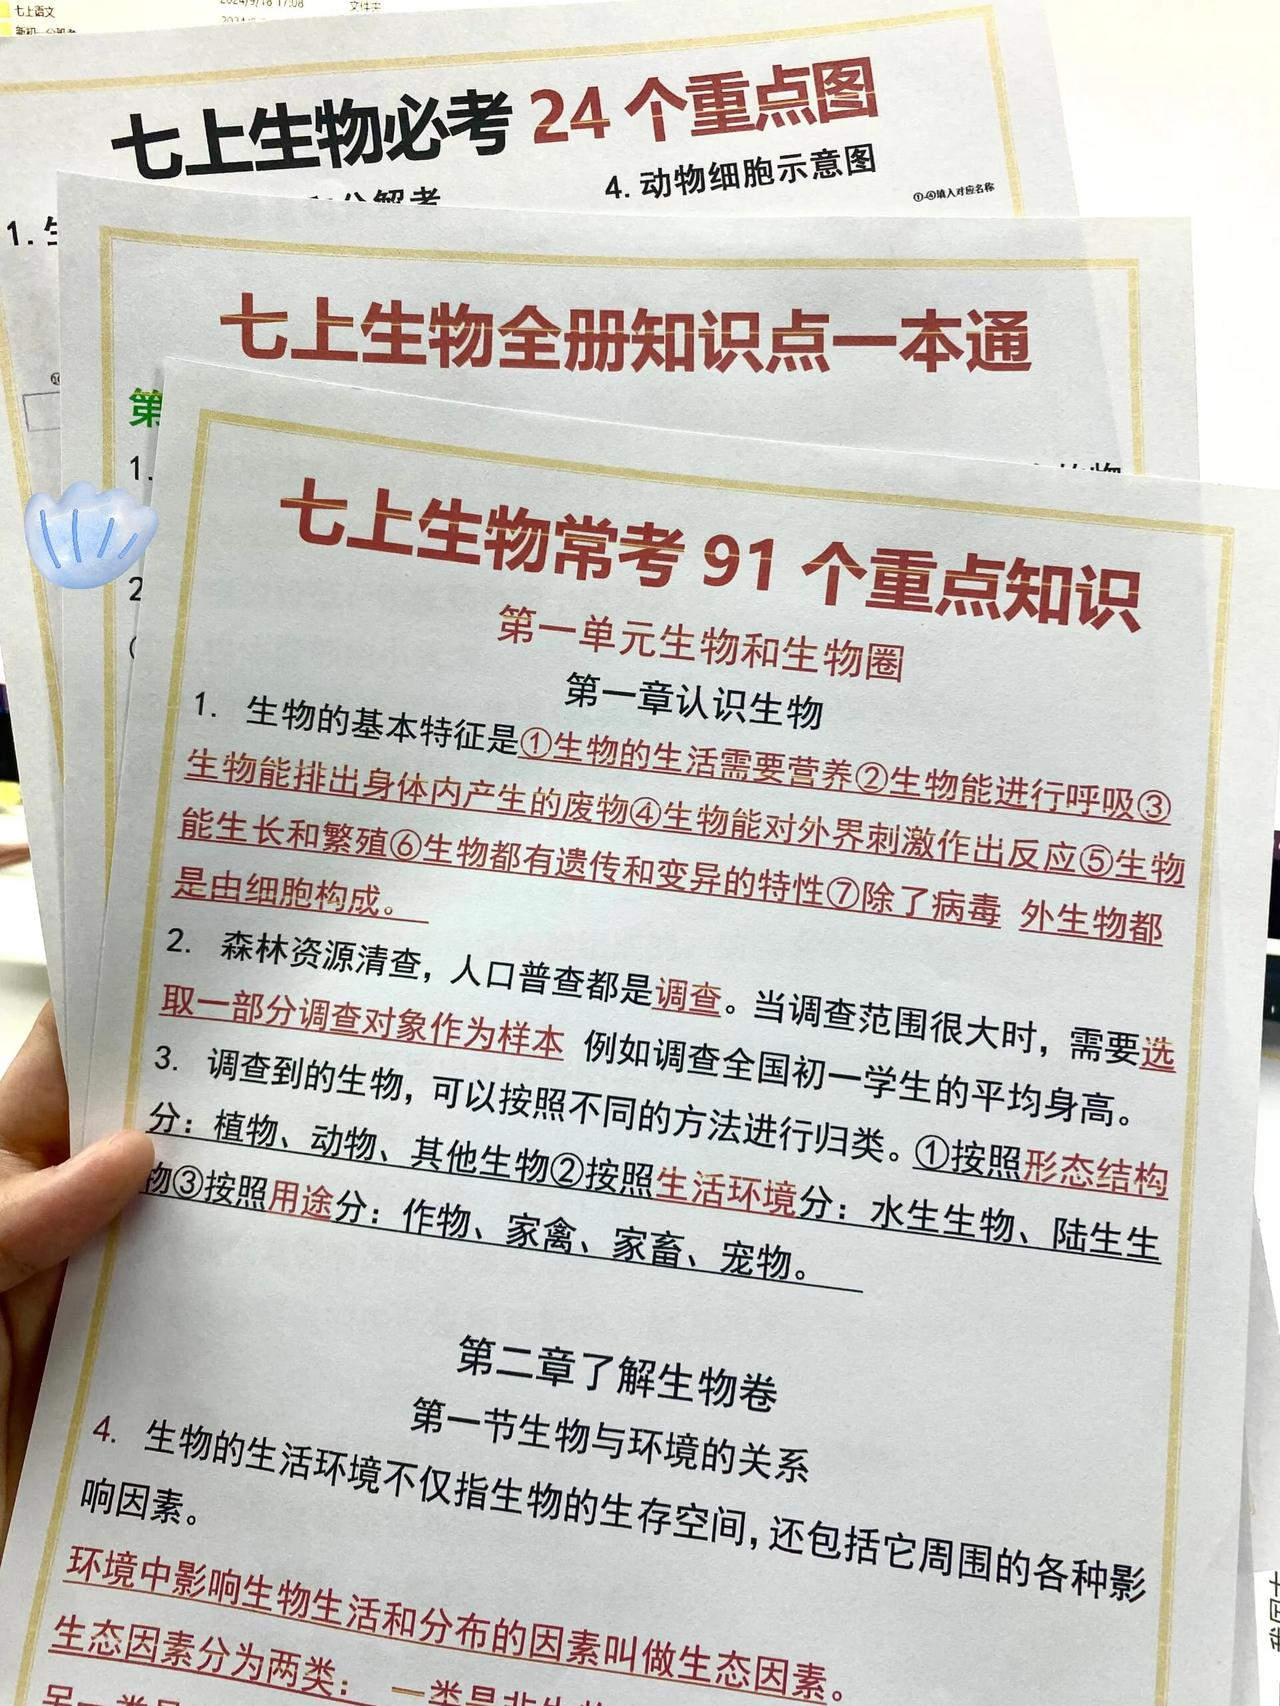 七上语文
2024/9/18 17:08
文件夹
七上生物必考 24 个重点图
4. 动物细胞示意图
①-④填入对应名称
1. 生
七上生物全册知识点一本通
第
1.
2
七上生物常考 91 个重点知识
第一单元生物和生物圈
第一章认识生物
1. 生物的基本特征是①生物的生活需要营养②生物能进行呼吸③
生物能排出身体内产生的废物④生物能对外界刺激作出反应⑤生物
能生长和繁殖⑥生物都有遗传和变异的特性⑦除了病毒 外生物都
是由细胞构成。
2. 森林资源清查，人口普查都是调查。当调查范围很大时，需要选
取一部分调查对象作为样本 例如调查全国初一学生的平均身高。
3. 调查到的生物，可以按照不同的方法进行归类。①按照形态结构
分：植物、动物、其他生物②按照生活环境分：水生生物、陆生生
物③按照用途分：作物、家禽、家畜、宠物。
第二章了解生物卷
第一节生物与环境的关系
4. 生物的生活环境不仅指生物的生存空间，还包括它周围的各种影
响因素。
环境中影响生物生活和分布的因素叫做生态因素。
生态因素分为两类：一类是非生物
另一类是